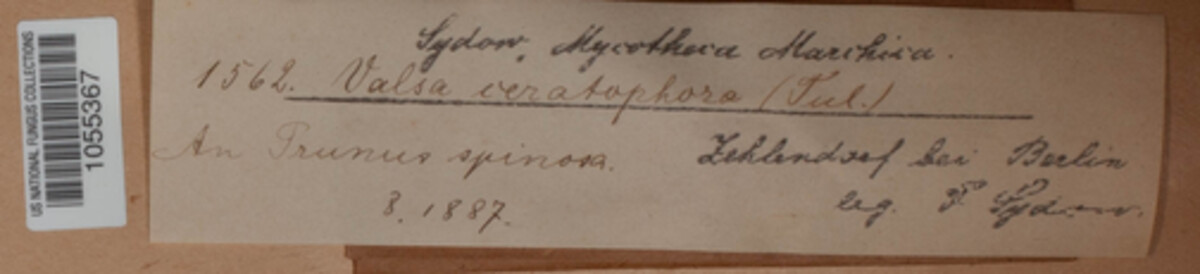 US NATIONAL FUNGUS COLLECTIONS
10553​67
Sydow, Mycotheca Marchica.
1562. Valsa ceratophora (Tul.)
An Prunus spinosa.
Zehlendorf bei Berlin
8. 1887.
leg. P. Sydow.